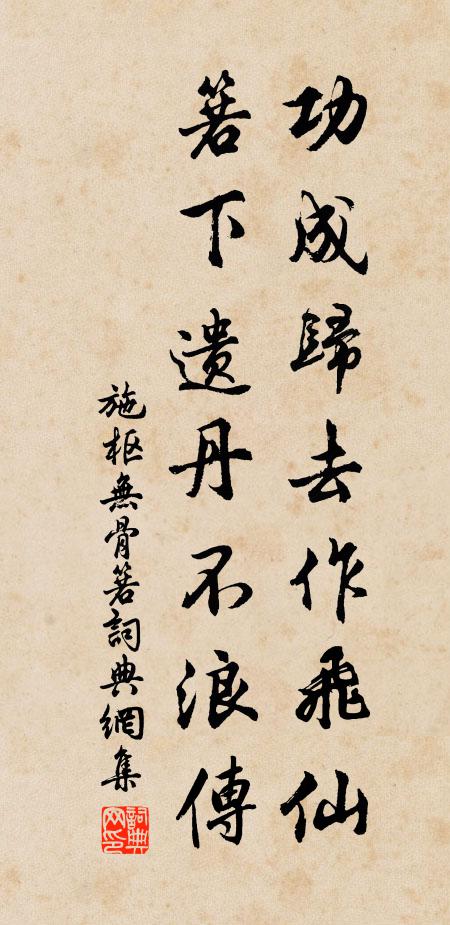 功成歸去作飛仙
箬下遺丹不浪傳
施枢無骨箬詞典網集
詞典网印